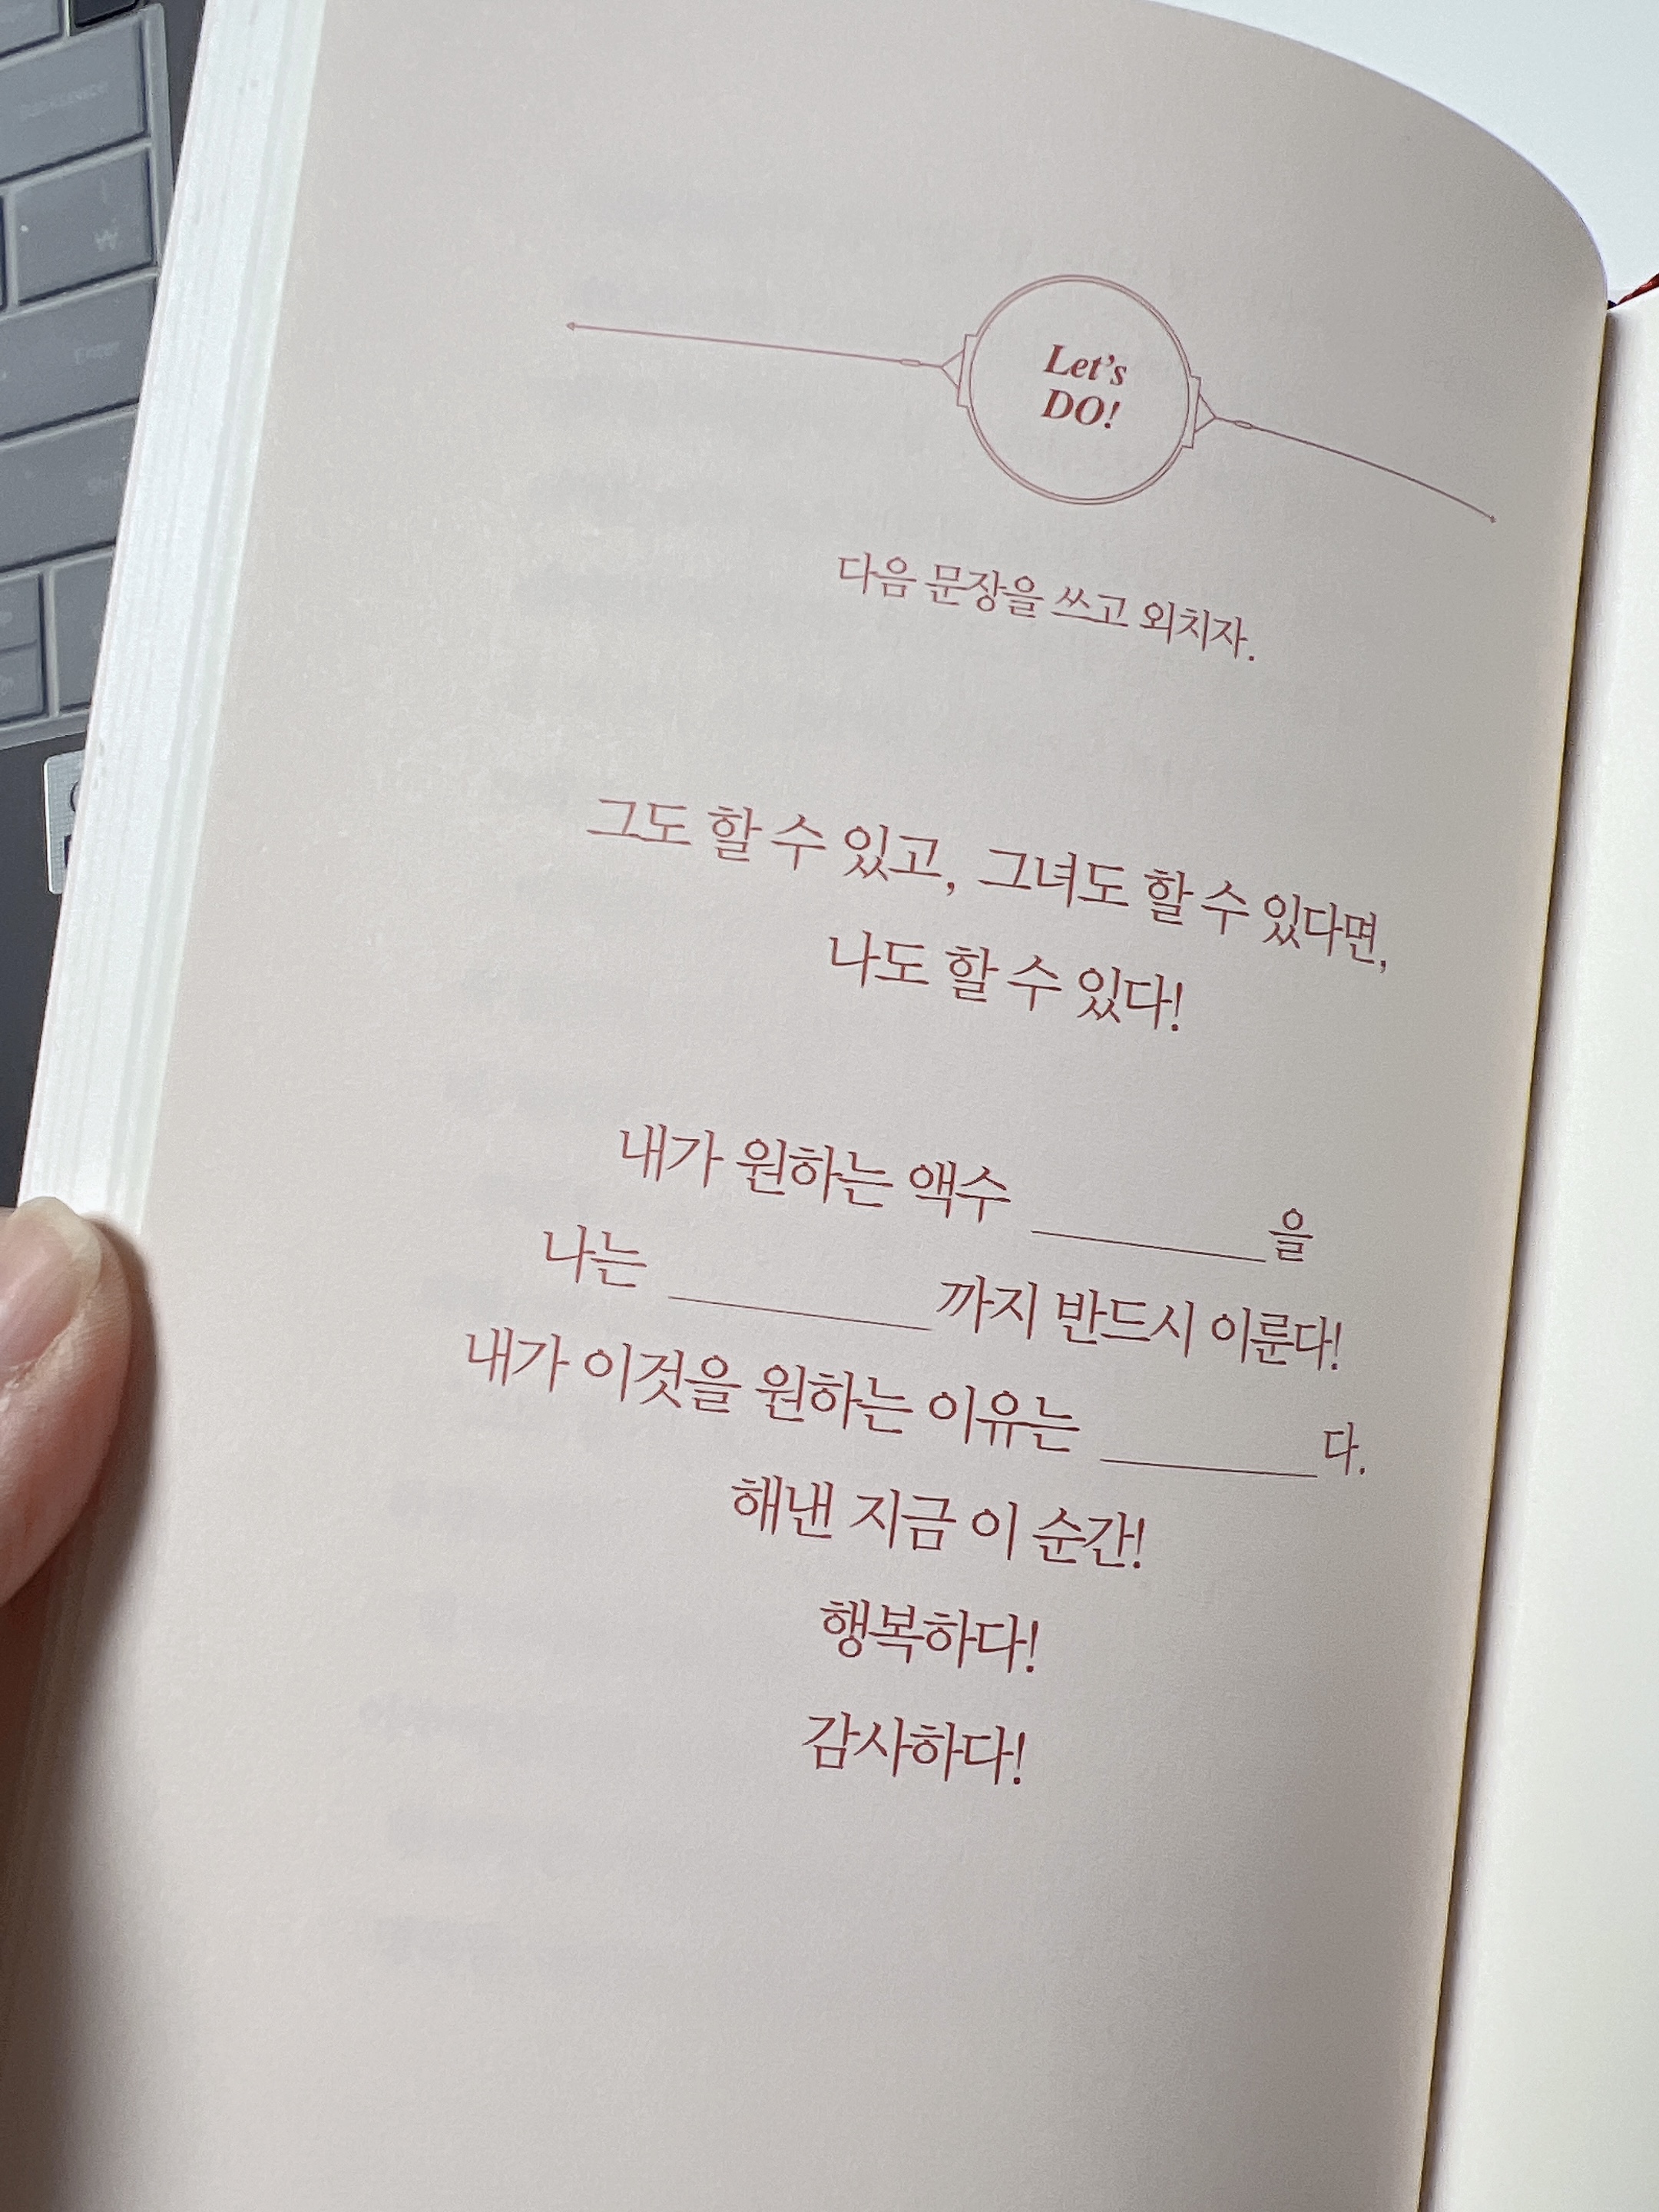 Enter
Let's
DO!
다음 문장을 쓰고 외치자.
그도 할 수 있고, 그녀도 할 수 있다면,
나도 할 수 있다!
내가 원하는 액수 ________을
나는 ________까지 반드시 이룬다!
내가 이것을 원하는 이유는 ________다.
해낸 지금 이 순간!
행복하다!
감사하다!